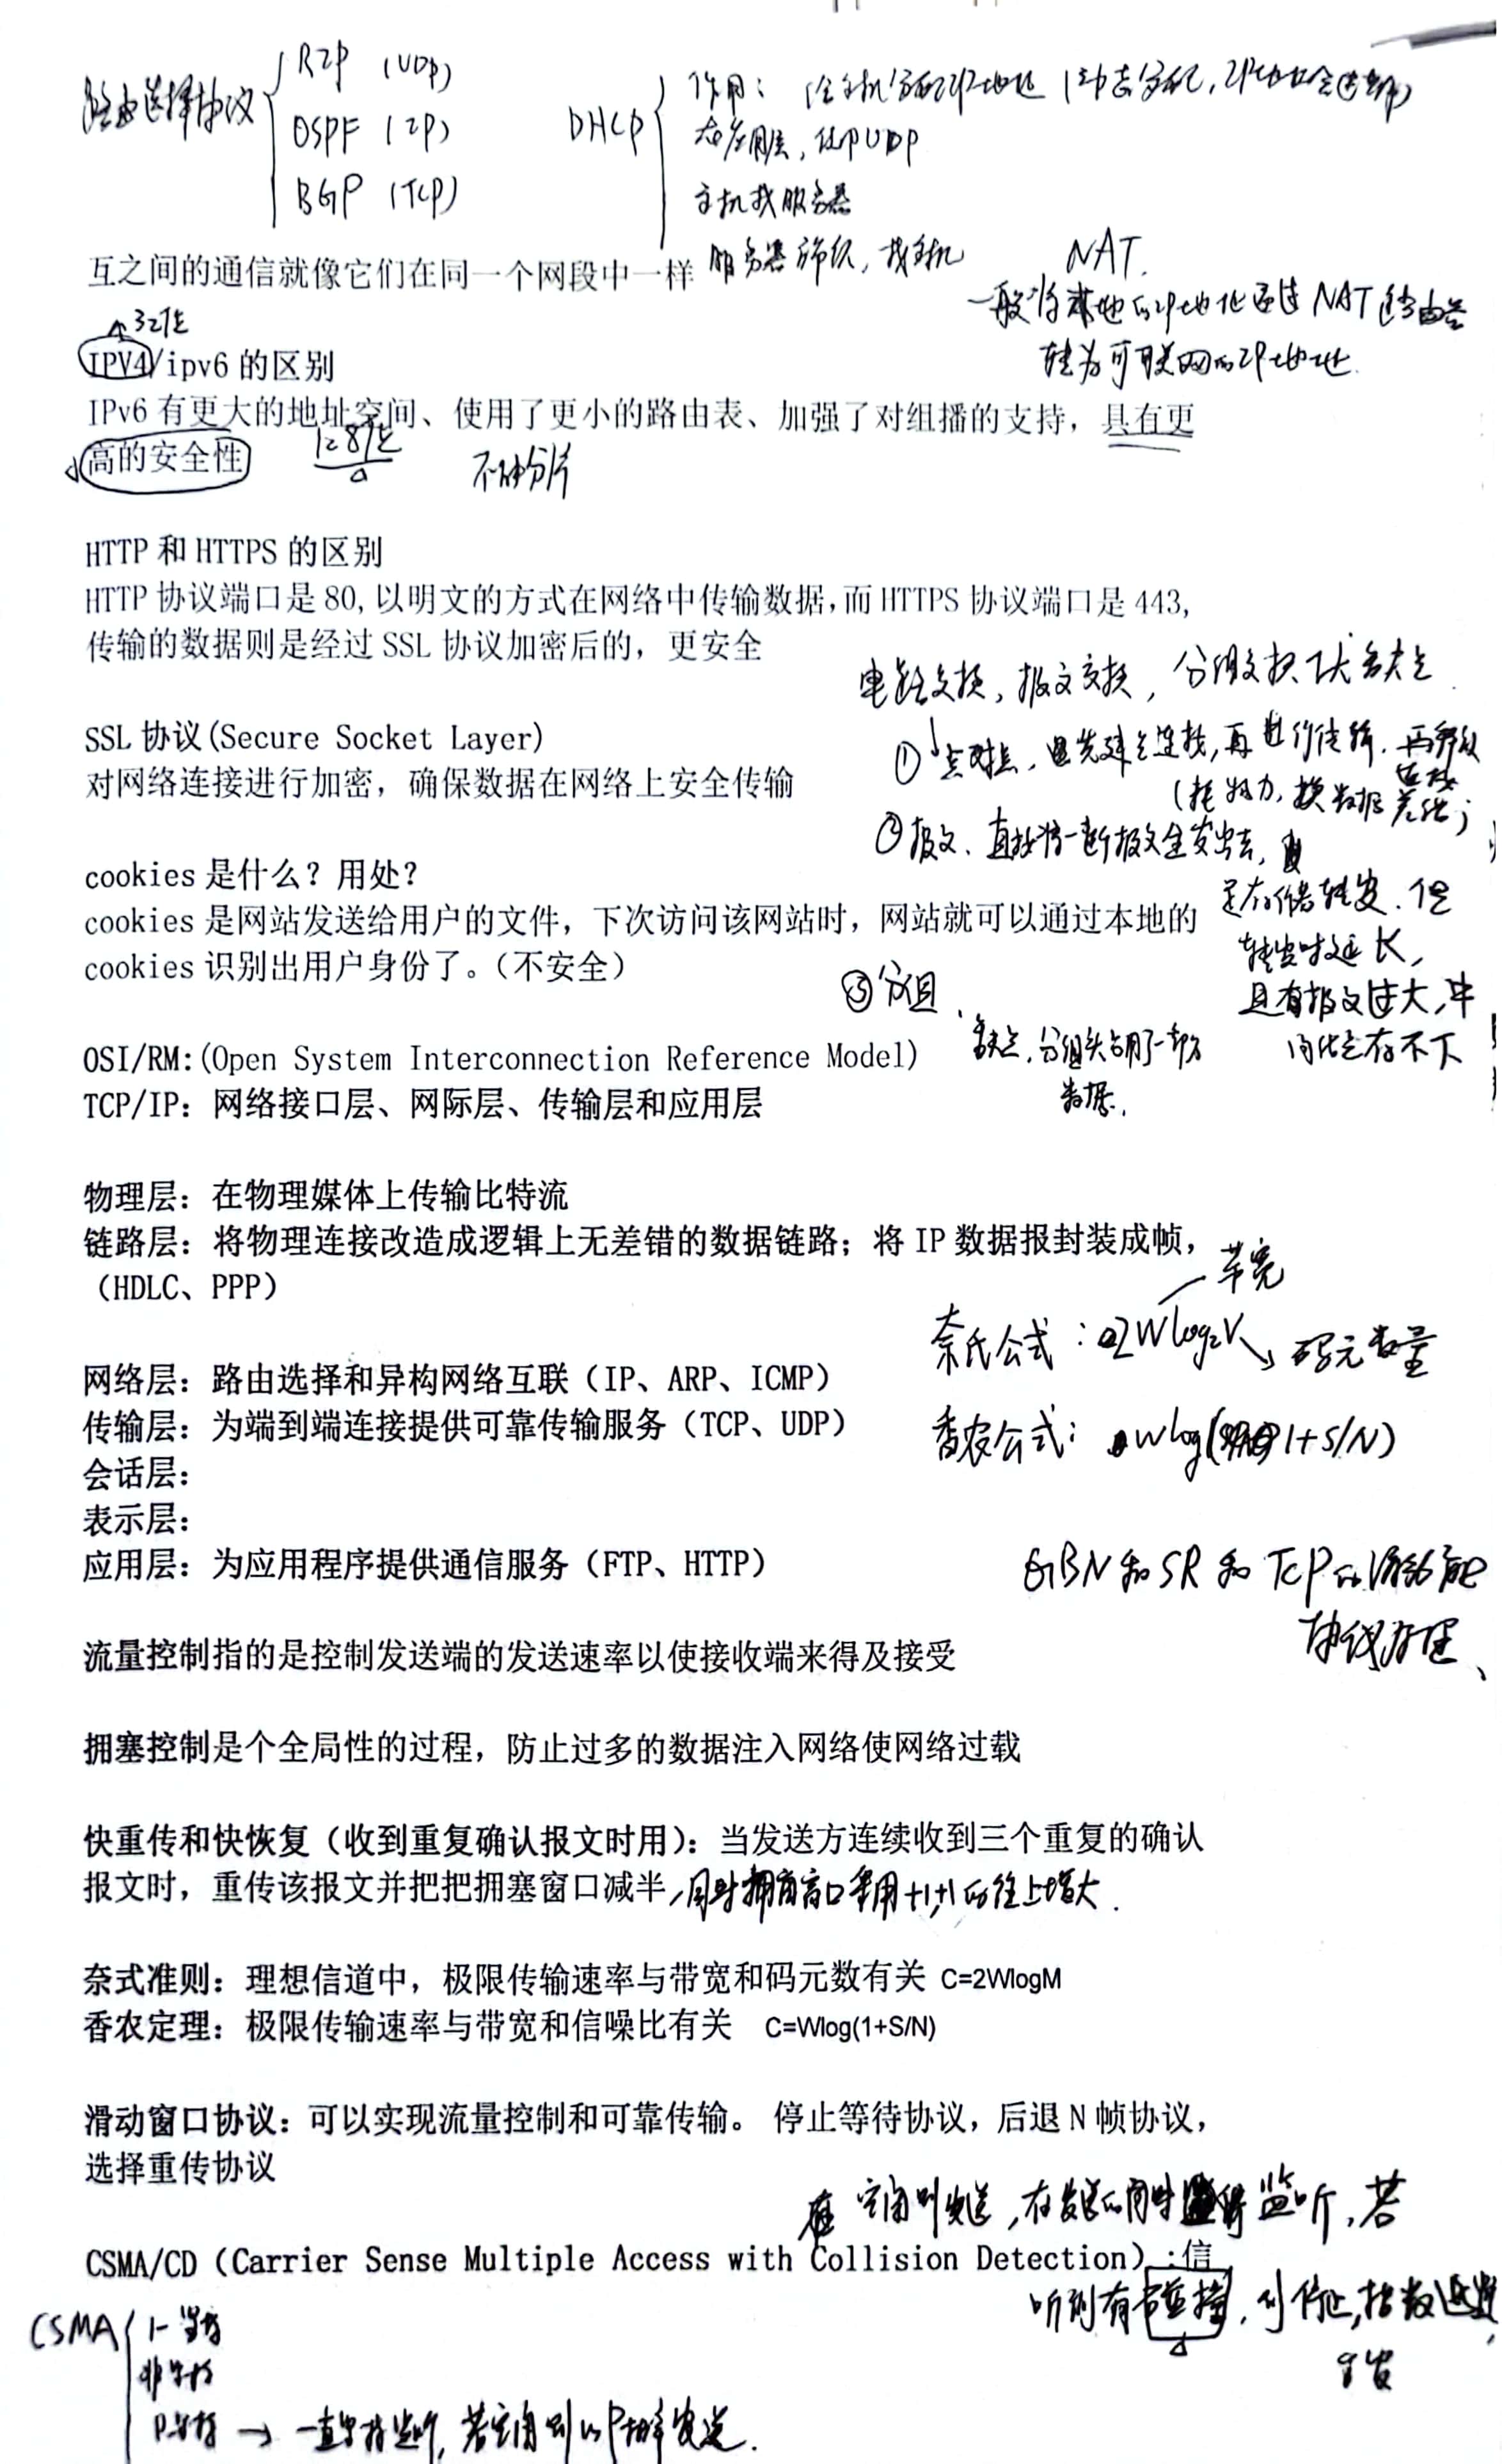 路由选择协议
RIP (UDP)
OSPF (IP)
BGP (TCP)
DHCP
作用：给主机分配IP地址（动态分配，IP地址会
在应用层，使用UDP
主机找服务器
服务器 找主机
互之间的通信就像它们在同一个网段中一样
NAT.
一般将本地的IP地址通过NAT路由器
转为可联网的IP地址.
32位
IPV4/ipv6 的区别
IPv6 有更大的地址空间、使用了更小的路由表、加强了对组播的支持，具有更
高的安全性
128位
不能分片
HTTP 和 HTTPS 的区别
HTTP 协议端口是 80,以明文的方式在网络中传输数据,而 HTTPS 协议端口是 443,
传输的数据则是经过 SSL 协议加密后的，更安全
电路交换，报文交换，分组交换 优缺点.
SSL 协议(Secure Socket Layer)
对网络连接进行加密，确保数据在网络上安全传输
① 点对点，先建立连接，再进行传输. 再释放
连接
②报文、直接将一断报文全发出去，
是存储转发.但
转发时延长，
且有报文过大，中
间结点存不下
cookies 是什么？用处？
cookies 是网站发送给用户的文件，下次访问该网站时，网站就可以通过本地的
cookies 识别出用户身份了。（不安全）
③ 分组、
缺点，分组头占用了一部分
数据.
OSI/RM:(Open System Interconnection Reference Model)
TCP/IP：网络接口层、网际层、传输层和应用层
物理层：在物理媒体上传输比特流
链路层：将物理连接改造成逻辑上无差错的数据链路；将 IP 数据报封装成帧，
（HDLC、PPP）
带宽
奈氏公式：2Wlog₂V 码元数量
网络层：路由选择和异构网络互联（IP、ARP、ICMP）
传输层：为端到端连接提供可靠传输服务（TCP、UDP）
香农公式：Wlog(1+S/N)
会话层：
表示层：
应用层：为应用程序提供通信服务（FTP、HTTP）
GBN和SR和TCP的
流量控制指的是控制发送端的发送速率以使接收端来得及接受
拥塞控制是个全局性的过程，防止过多的数据注入网络使网络过载
快重传和快恢复（收到重复确认报文时用）：当发送方连续收到三个重复的确认
报文时，重传该报文并把把拥塞窗口减半，同时拥塞窗口采用+1,+1的往上增大.
奈式准则：理想信道中，极限传输速率与带宽和码元数有关 C=2WlogM
香农定理：极限传输速率与带宽和信噪比有关 C=Wlog(1+S/N)
滑动窗口协议：可以实现流量控制和可靠传输。 停止等待协议，后退 N 帧协议，
选择重传协议
空闲则发送，在发送的同时 监听，若
CSMA/CD（Carrier Sense Multiple Access with Collision Detection）:信
听到有碰撞，则停止，指数退避，
重发
CSMA
1-坚持
非坚持
P坚持 → 一直坚持监听，若空闲则以P概率发送.